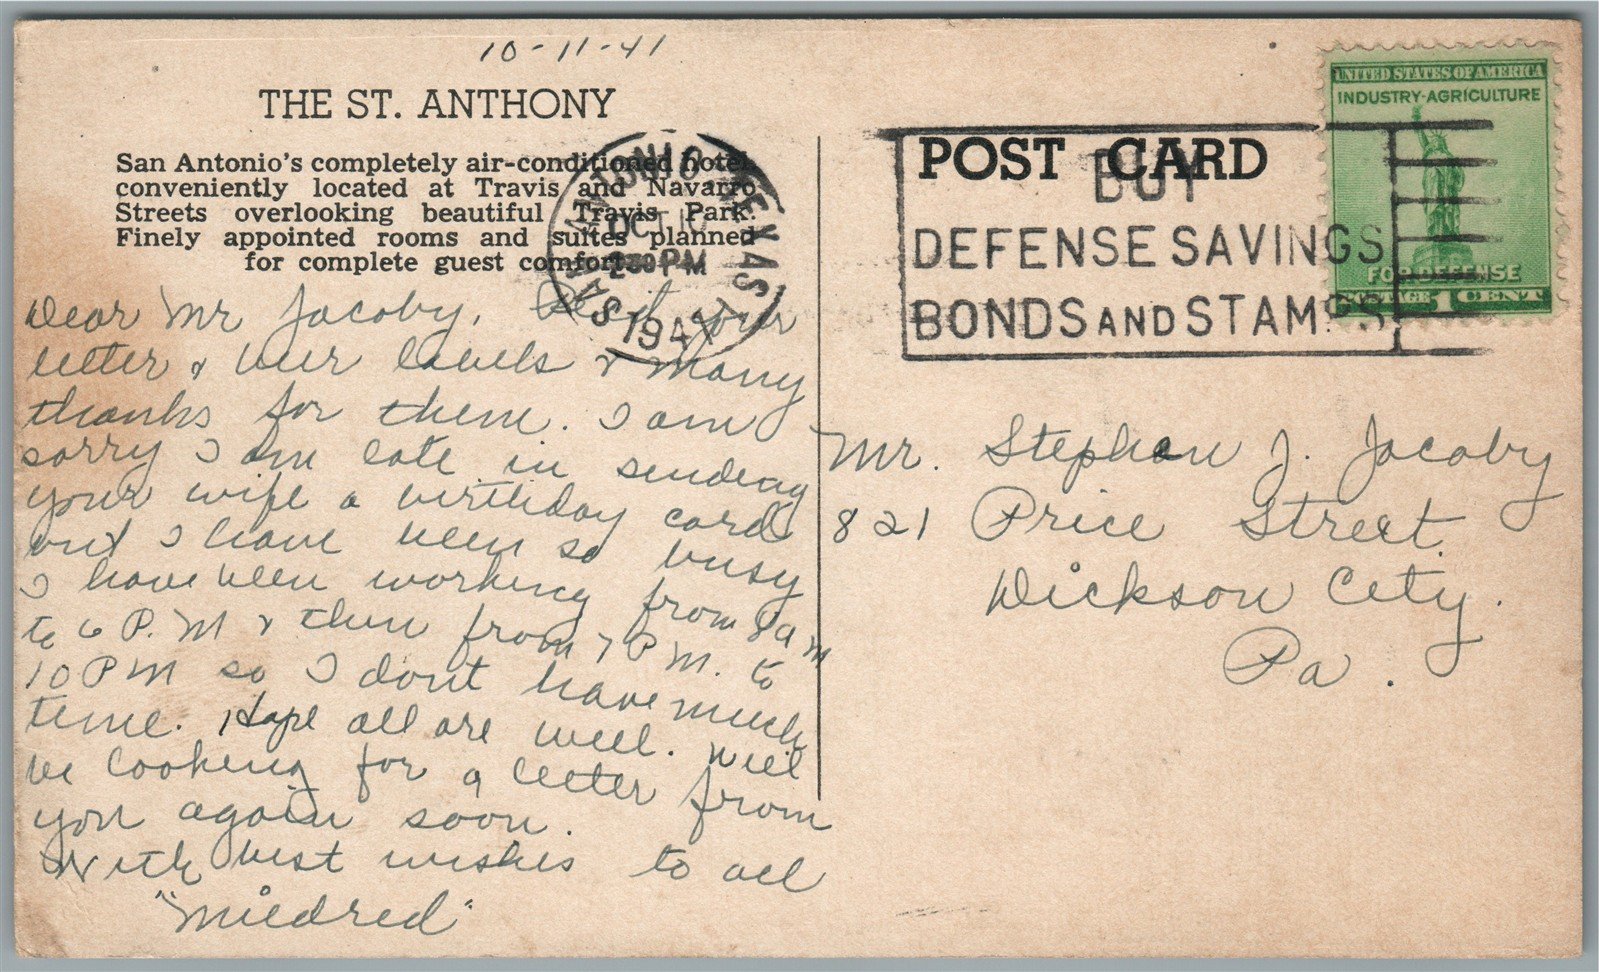 10-11-41
THE ST. ANTHONY
San Antonio's completely air-conditioned hotel
conveniently located at Travis and Navarro
Streets overlooking beautiful Travis Park.
Finely appointed rooms and suites planned
for complete guest comfort.
SAN ANTONIO TEXAS
OCT 10
2:30 PM
1941
POST CARD
BUY
DEFENSE SAVINGS
BONDS AND STAMPS
UNITED STATES OF AMERICA
INDUSTRY-AGRICULTURE
FOR DEFENSE
POSTAGE 1 CENT
Dear Mr Jacoby, Rec'd your
letter & beer labels & many
thanks for them. I am
sorry I am late in sending
your wife a birthday card
but I have been so busy
I have been working from 8 A M
to 6 P. M & then from 7 P M. to
10 PM so I dont have much
time. Hope all are well. Will
be looking for a letter from
you again soon.
With best wishes to all
"Mildred"
Mr. Stephen J. Jacoby
821 Price Street.
Dickson City.
Pa.